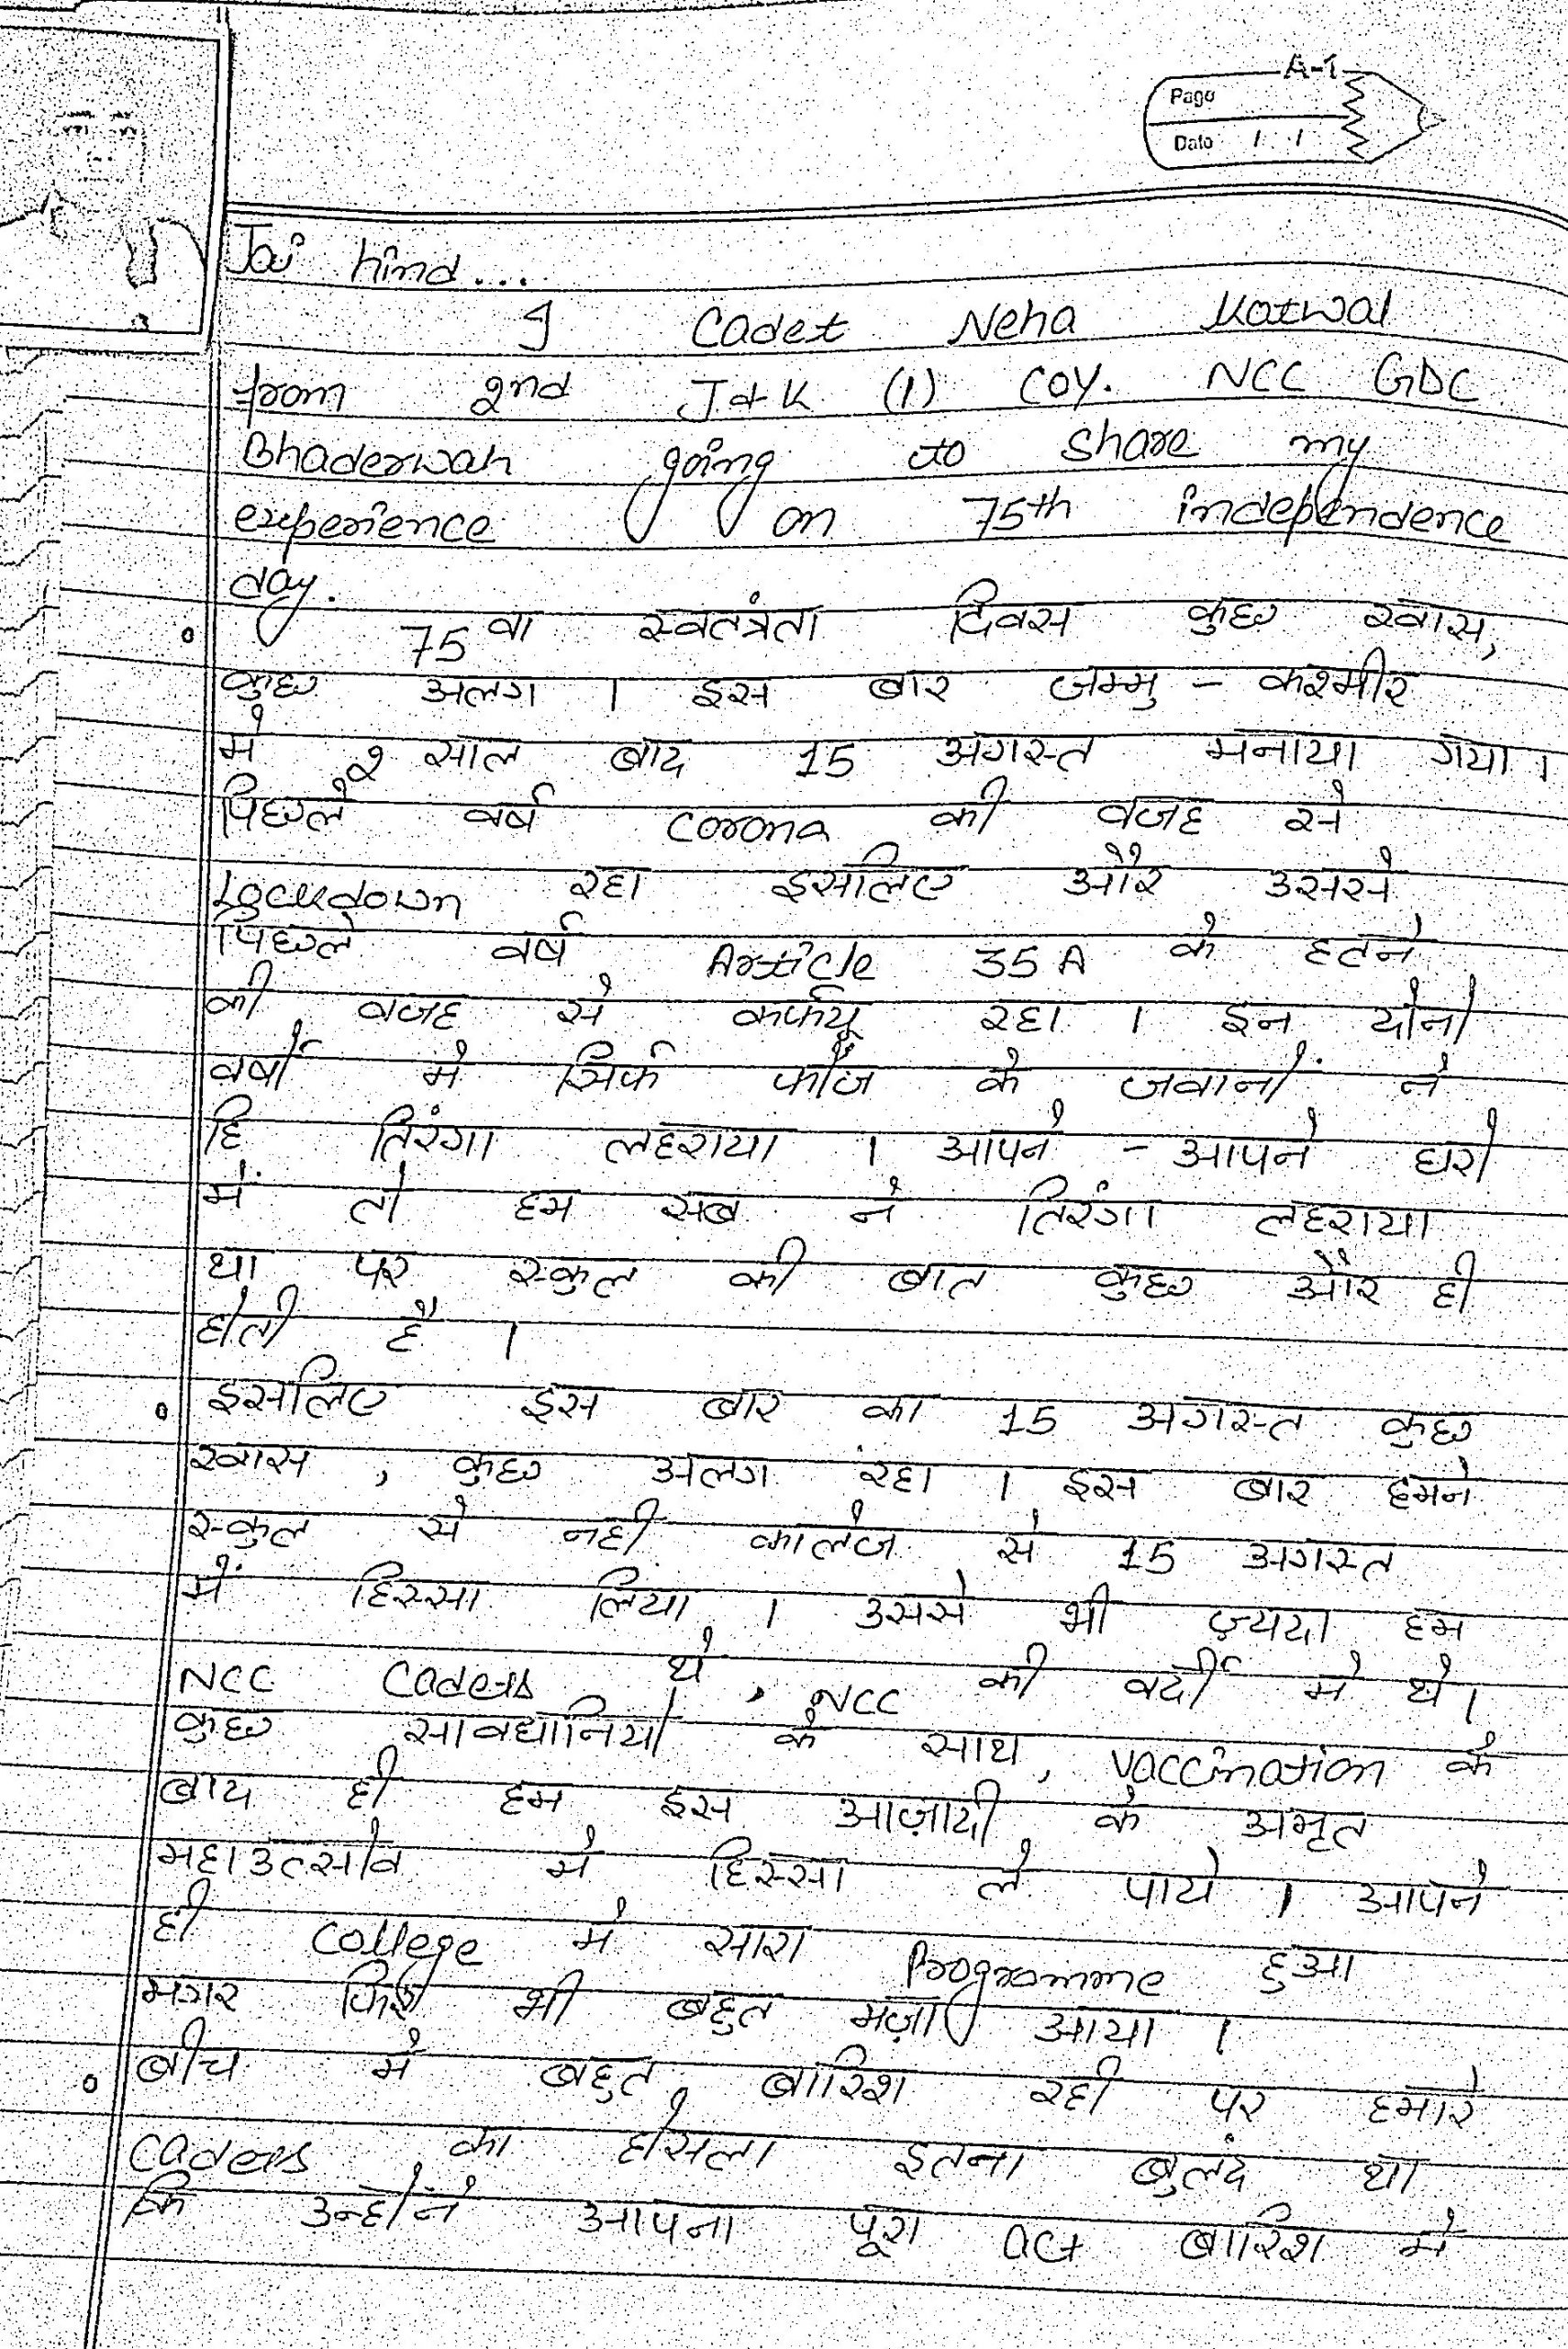 A-1
Page
Date / /
Jai hind....
I Cadet Neha Kotwal
from 2nd J&K (1) COY. NCC GDC
Bhaderwah going to share my
experience on 75th independence
day.
75 वा स्वतंत्रता दिवस कुछ खास,
कुछ अलग । इस बार जम्मु - कश्मीर
मे 2 साल बाद 15 अगस्त मनाया गया ।
पिछले वर्ष corona की वजह से
Lockdown रहा इसलिए और उससे
पिछले वर्ष Article 35 A के हटने
की वजह से कर्फयू रहा । इन दोनो
वर्षो मे सिर्फ फौज के जवानों ने
हि तिरंगा लहराया । आपने - आपने घरो
में तो हम सब ने तिरंगा लहराया
था पर स्कुल की बात कुछ और ही
होती है ।
इसलिए इस बार का 15 अगस्त कुछ
खास , कुछ अलग रंहा । इस बार हमने
स्कुल से नही कालेज से 15 अगस्त
में हिस्सा लिया । उससे भी ज़्यदा हम
NCC Cadets थे , NCC की वर्दी मे थे ।
कुछ सावधानियो के साथ , vaccination के
बाद ही हम इस आज़ादी के अमृत
महाउत्सोव मे हिस्सा ले पाये । आपने
ही College मे सारा Programme हुआ
मगर फिर भी बहुत मज़ा आया ।
बीच मे बहुत बारिश रही पर हमारे
Cadets का होसला इतना बुलंद था
कि उन्होने आपना पूरा act बारिश मे